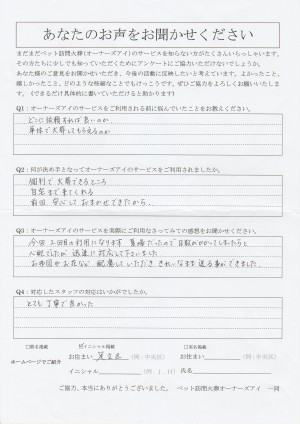 あなたのお声をお聞かせください
まだまだペット訪問火葬(オーナーズアイ)のサービスを知らない方がたくさんいらっしゃいます。
その方たちにも少しでも知っていただくためにアンケートにご協力いただけないでしょうか。
あなた様のご意見をお聞かせいただき、今後の活動に反映したいと考えています。よかったこと、
嬉しかったこと、どのような些細なことでもけっこうです。ぜひご協力をよろしくお願いいたします。
(できるだけ具体的に書いていただけると助かります)
Q1:オーナーズアイのサービスをご利用される前に悩んでいたことをお教えください。
どこに依頼すれば良いのか
単体で火葬してもらえるのか
Q2:何が決め手となってオーナーズアイのサービスをご利用されましたか。
個別で火葬できるところ
自宅まで来てくれる
前回安心しておまかせできたから。
Q3:オーナーズアイのサービスを実際にご利用なさってみての感想をお聞かせください。
今回2回目の利用になります
心配でしたが 迅速に対応して下さいました
お花など 配慮していただき きれいなまま送る事ができました。
Q4:対応したスタッフの対応はいかがでしたか。
とても丁寧で良かった
□匿名掲載 ☑イニシャル掲載 □実名掲載
ホームページでご紹介
お住まい 足立区 (例:中央区) お住まい (例:中央区)
イニシャル (例:I.H) 氏名
ご協力、本当にありがとうございました。 ペット訪問火葬オーナーズアイ 一同